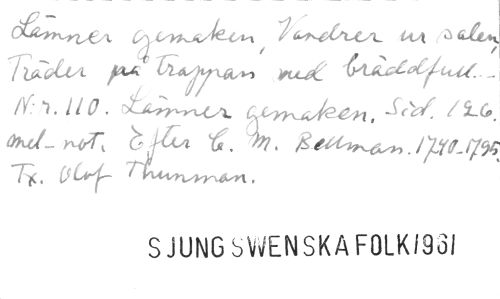 Lämner gemaken, Vandrer ur salen
Träder på trappan med bräddfull...
N:r. 110. Lämner gemaken. Sid. 126.
mel-not. Efter C. M. Bellman. 1740-1795.
Tx. Olof Thunman.
SJUNG SWENSKA FOLK 1961